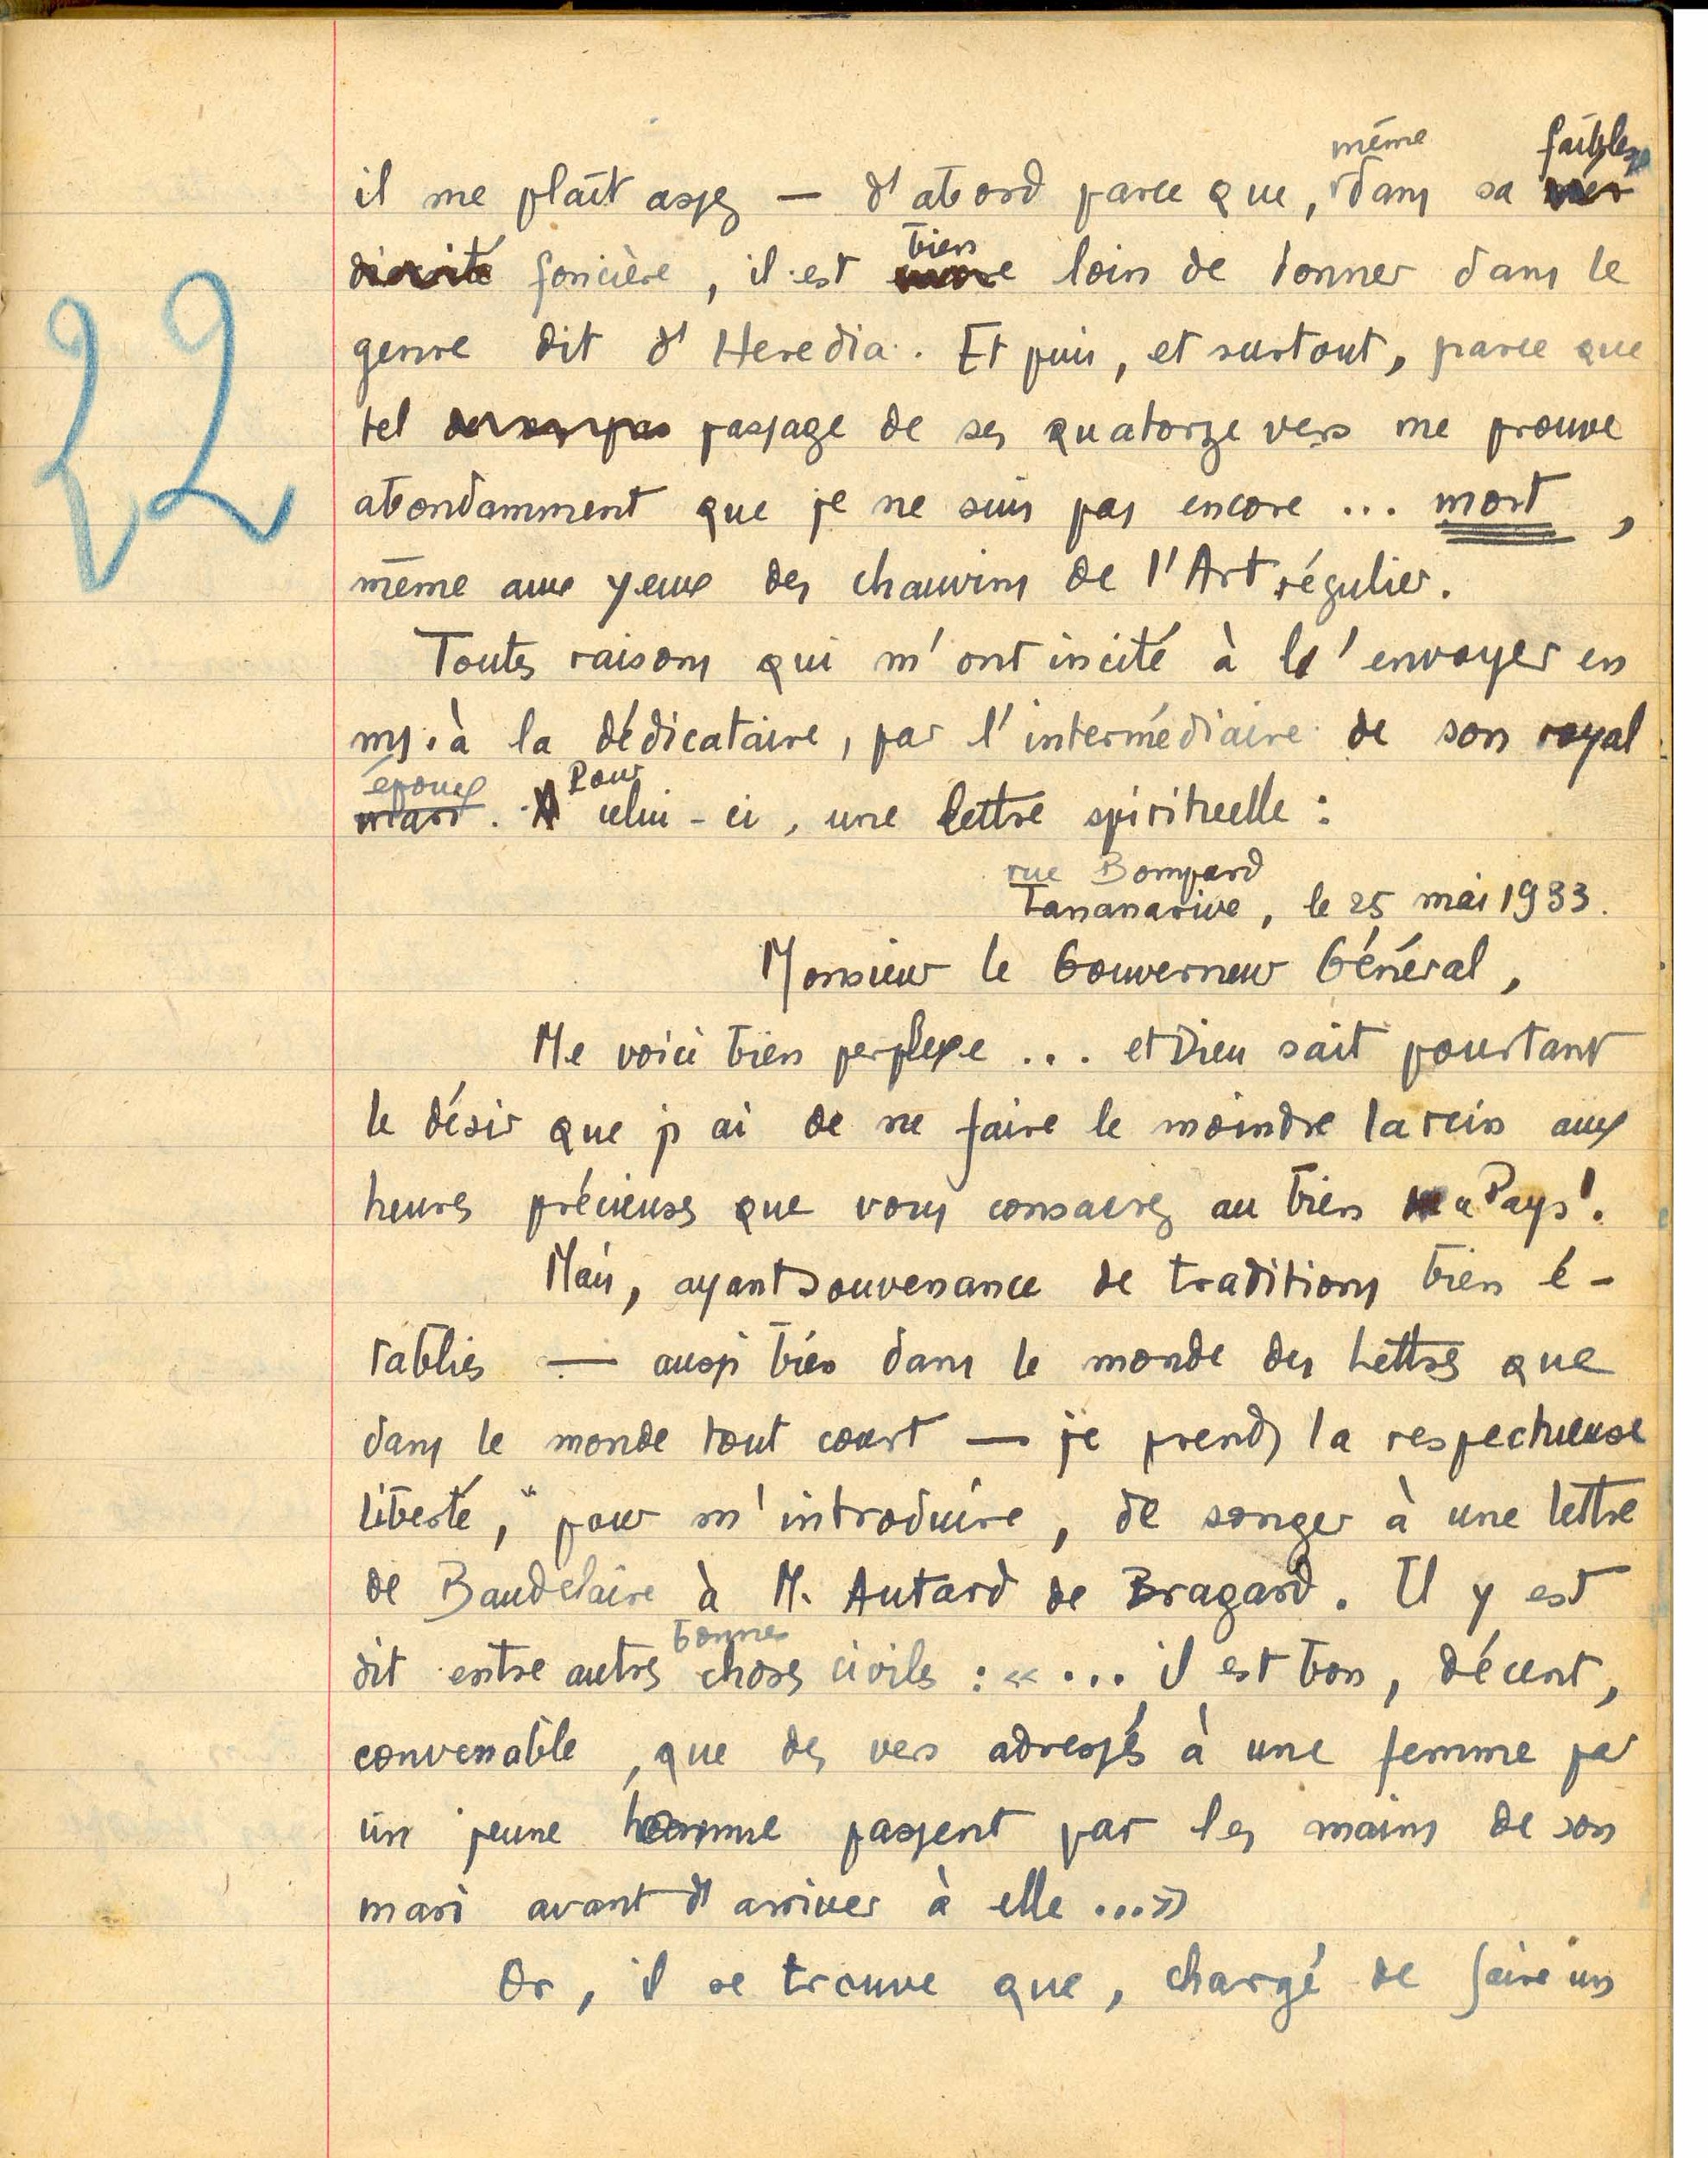 22
il me plaît assez — d'abord parce que, même dans sa faiblesse
foncière, il est bien loin de donner dans le
genre dit d'Heredia. Et puis, et surtout, parce que
tel passage de ses quatorze vers me prouve
abondamment que je ne suis pas encore ... mort,
même aux yeux des chauvins de l'Art régulier.
Toutes raisons qui m'ont incité à l'envoyer en
ms. à la dédicataire, par l'intermédiaire de son royal
époux. Pour celui-ci, une lettre spirituelle :
rue Bompard
Tananarive, le 25 mai 1933.
Monsieur le Gouverneur Général,
Me voici bien perplexe ... et Dieu sait pourtant
le désir que j'ai de ne faire le moindre larcin aux
heures précieuses que vous consacrez au bien du Pays!
Mais, ayant souvenance de traditions bien é-
tablies — aussi bien dans le monde des Lettres que
dans le monde tout court — je prends la respectueuse
liberté, pour m'introduire, de songer à une lettre
de Baudelaire à M. Autard de Bragard. Il y est
dit entre autres bonnes choses civiles : « ... il est bon, décent,
convenable, que des vers adressés à une femme par
un jeune homme passent par les mains de son
mari avant d'arriver à elle ...»
Or, il se trouve que, chargé de faire un